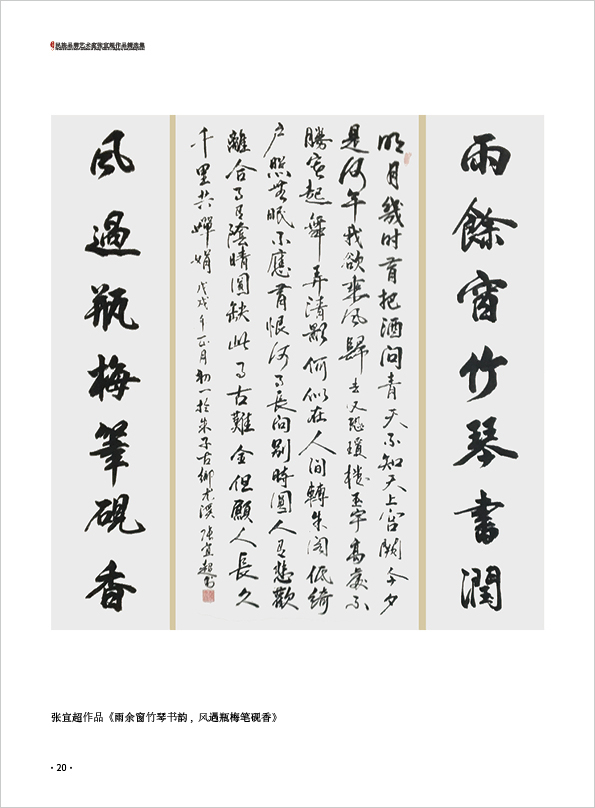 民族品牌艺术家张宜超作品精选集
雨餘窗竹琴書潤
明月幾时有把酒问青天不知天上宫阙今夕
是何年我欲乘风歸去又恐瓊楼玉宇高處不
勝寒起舞弄清影何似在人间轉朱阁低绮
户照無眠不應有恨何事長向别時圓人有悲歡
離合月有陰晴圓缺此事古難全但願人長久
千里共嬋娟 戊戌年正月初一於朱子古鄉尤溪 张宜超書
風過瓶梅筆硯香
张宜超作品《雨余窗竹琴书韵，风遇瓶梅笔砚香》
· 20 ·